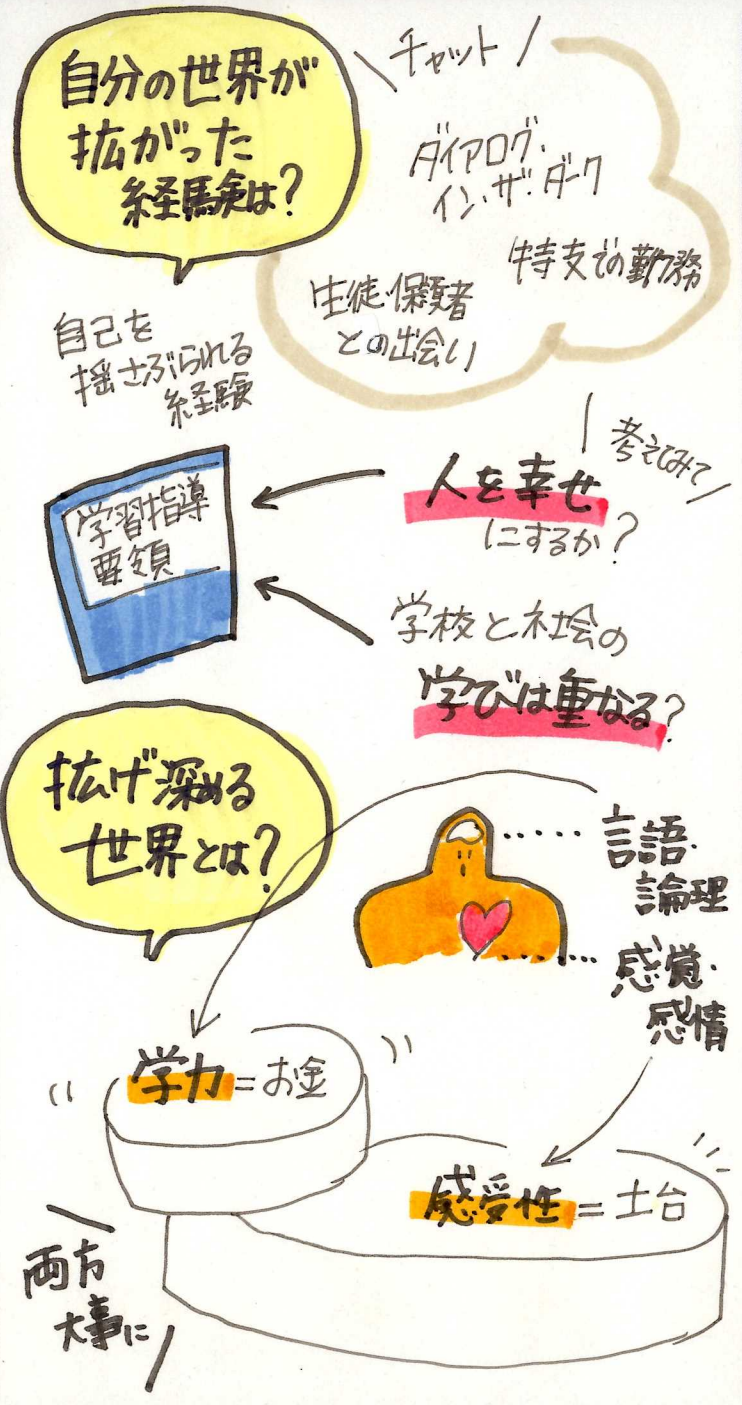 自分の世界が
拡がった
経験は?
チャット
ダイアログ・
イン・ザ・ダーク
特支での勤務
生徒・保護者
との出会い
自己を
揺さぶられる
経験
考えてみて
人を幸せ
にするか?
学習指導
要領
学校と社会の
学びは重なる?
拡げ深める
世界とは?
言語・
論理
感覚・
感情
学力=お金
感受性=土台
両方
大事に